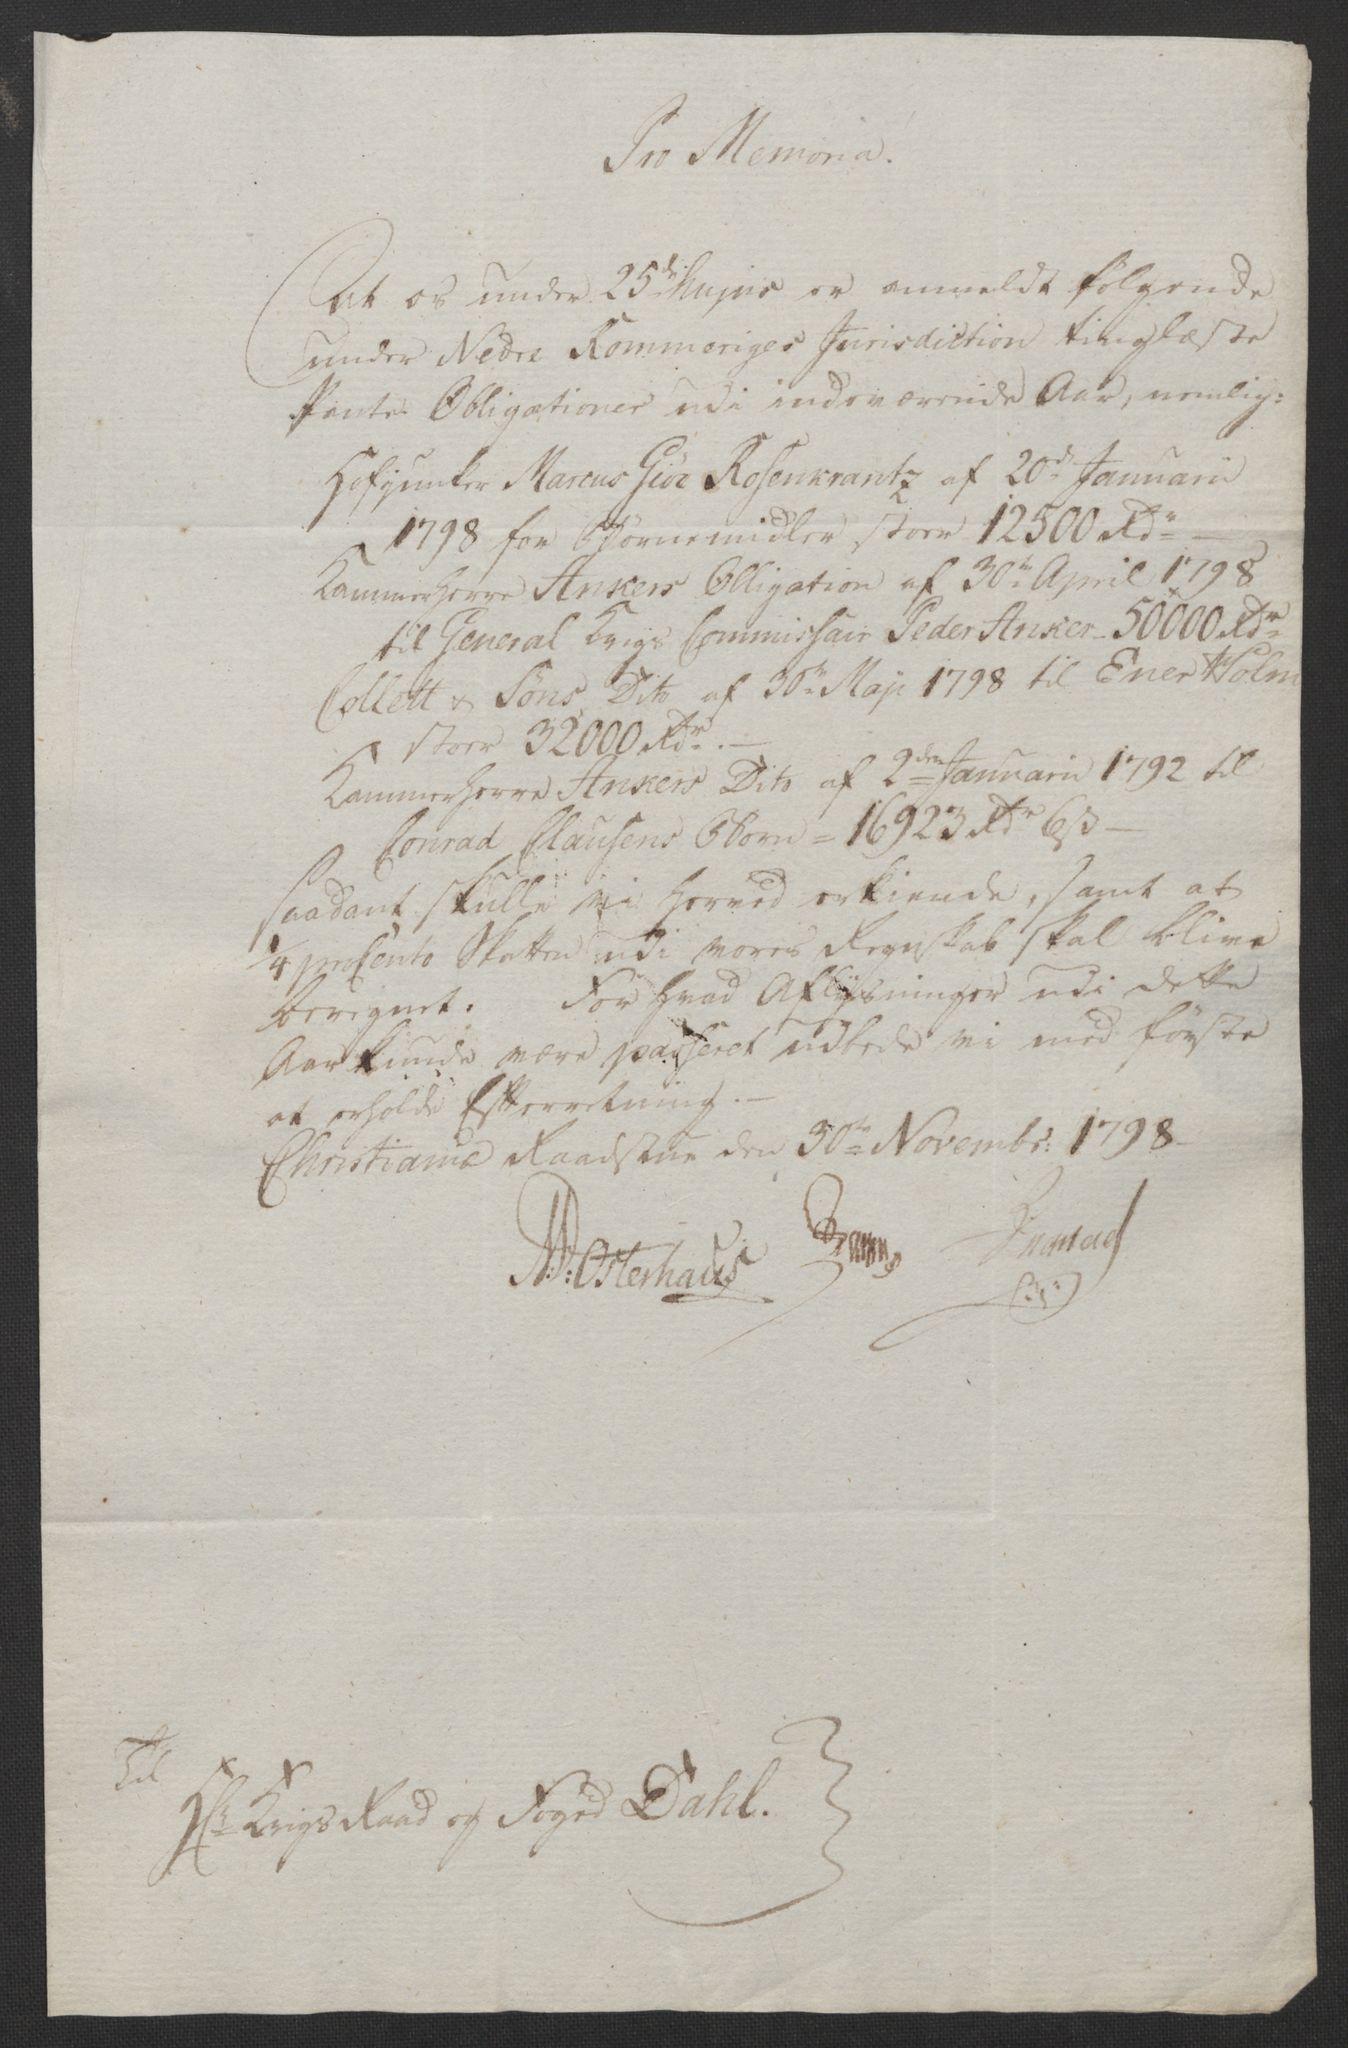 Pro Memoria.
At os under 25de hujus er anmeldt følgende
under Nedre Rommeriges Jurisdiction tinglæste
Pante Obligationer udi indeværende Aar, nemlig:
Hofjunker Marcus Giøe Rosenkrantz af 20d Januarii
1798 for Børnemidler stoer 12500 Rdr —
Kammerherre Ankers Obligation af 30te April 1798
til General Krigs Commissair Peder Anker - 50000 Rdr
Collett & Søns Dito af 30te Maji 1798 til Ener Holm
stoer 32000 Rdr. —
Kammerherre Ankers Dito af 2den Januarii 1792 til
Conrad Clausens Børn = 16923 Rdr 6 ß —
Saadant skulle vi herved erkiende, samt at
1/4 procento Skatten udi vores Regnskab skal blive
beregnet. For hvad Aflysninger udi dette
Aar kunde være passeret udbede vi med første
at erholde Efterretning. —
Christiania Raadstue den 30te Novembr: 1798
Osterhaus
Til
Hr Krigs Raad og Foged Dahl.